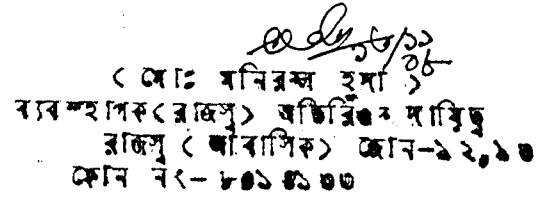 ১৮/১১
০৮
( মোঃ মনিরুল হুদা )
ব্যবস্হাপক(রাজস্ব) অতিরিক্ত দায়িত্ব
রাজস্ব ( আবাসিক) জোন-১২,১৩
ফোন নং- ৮০১৪১০৩